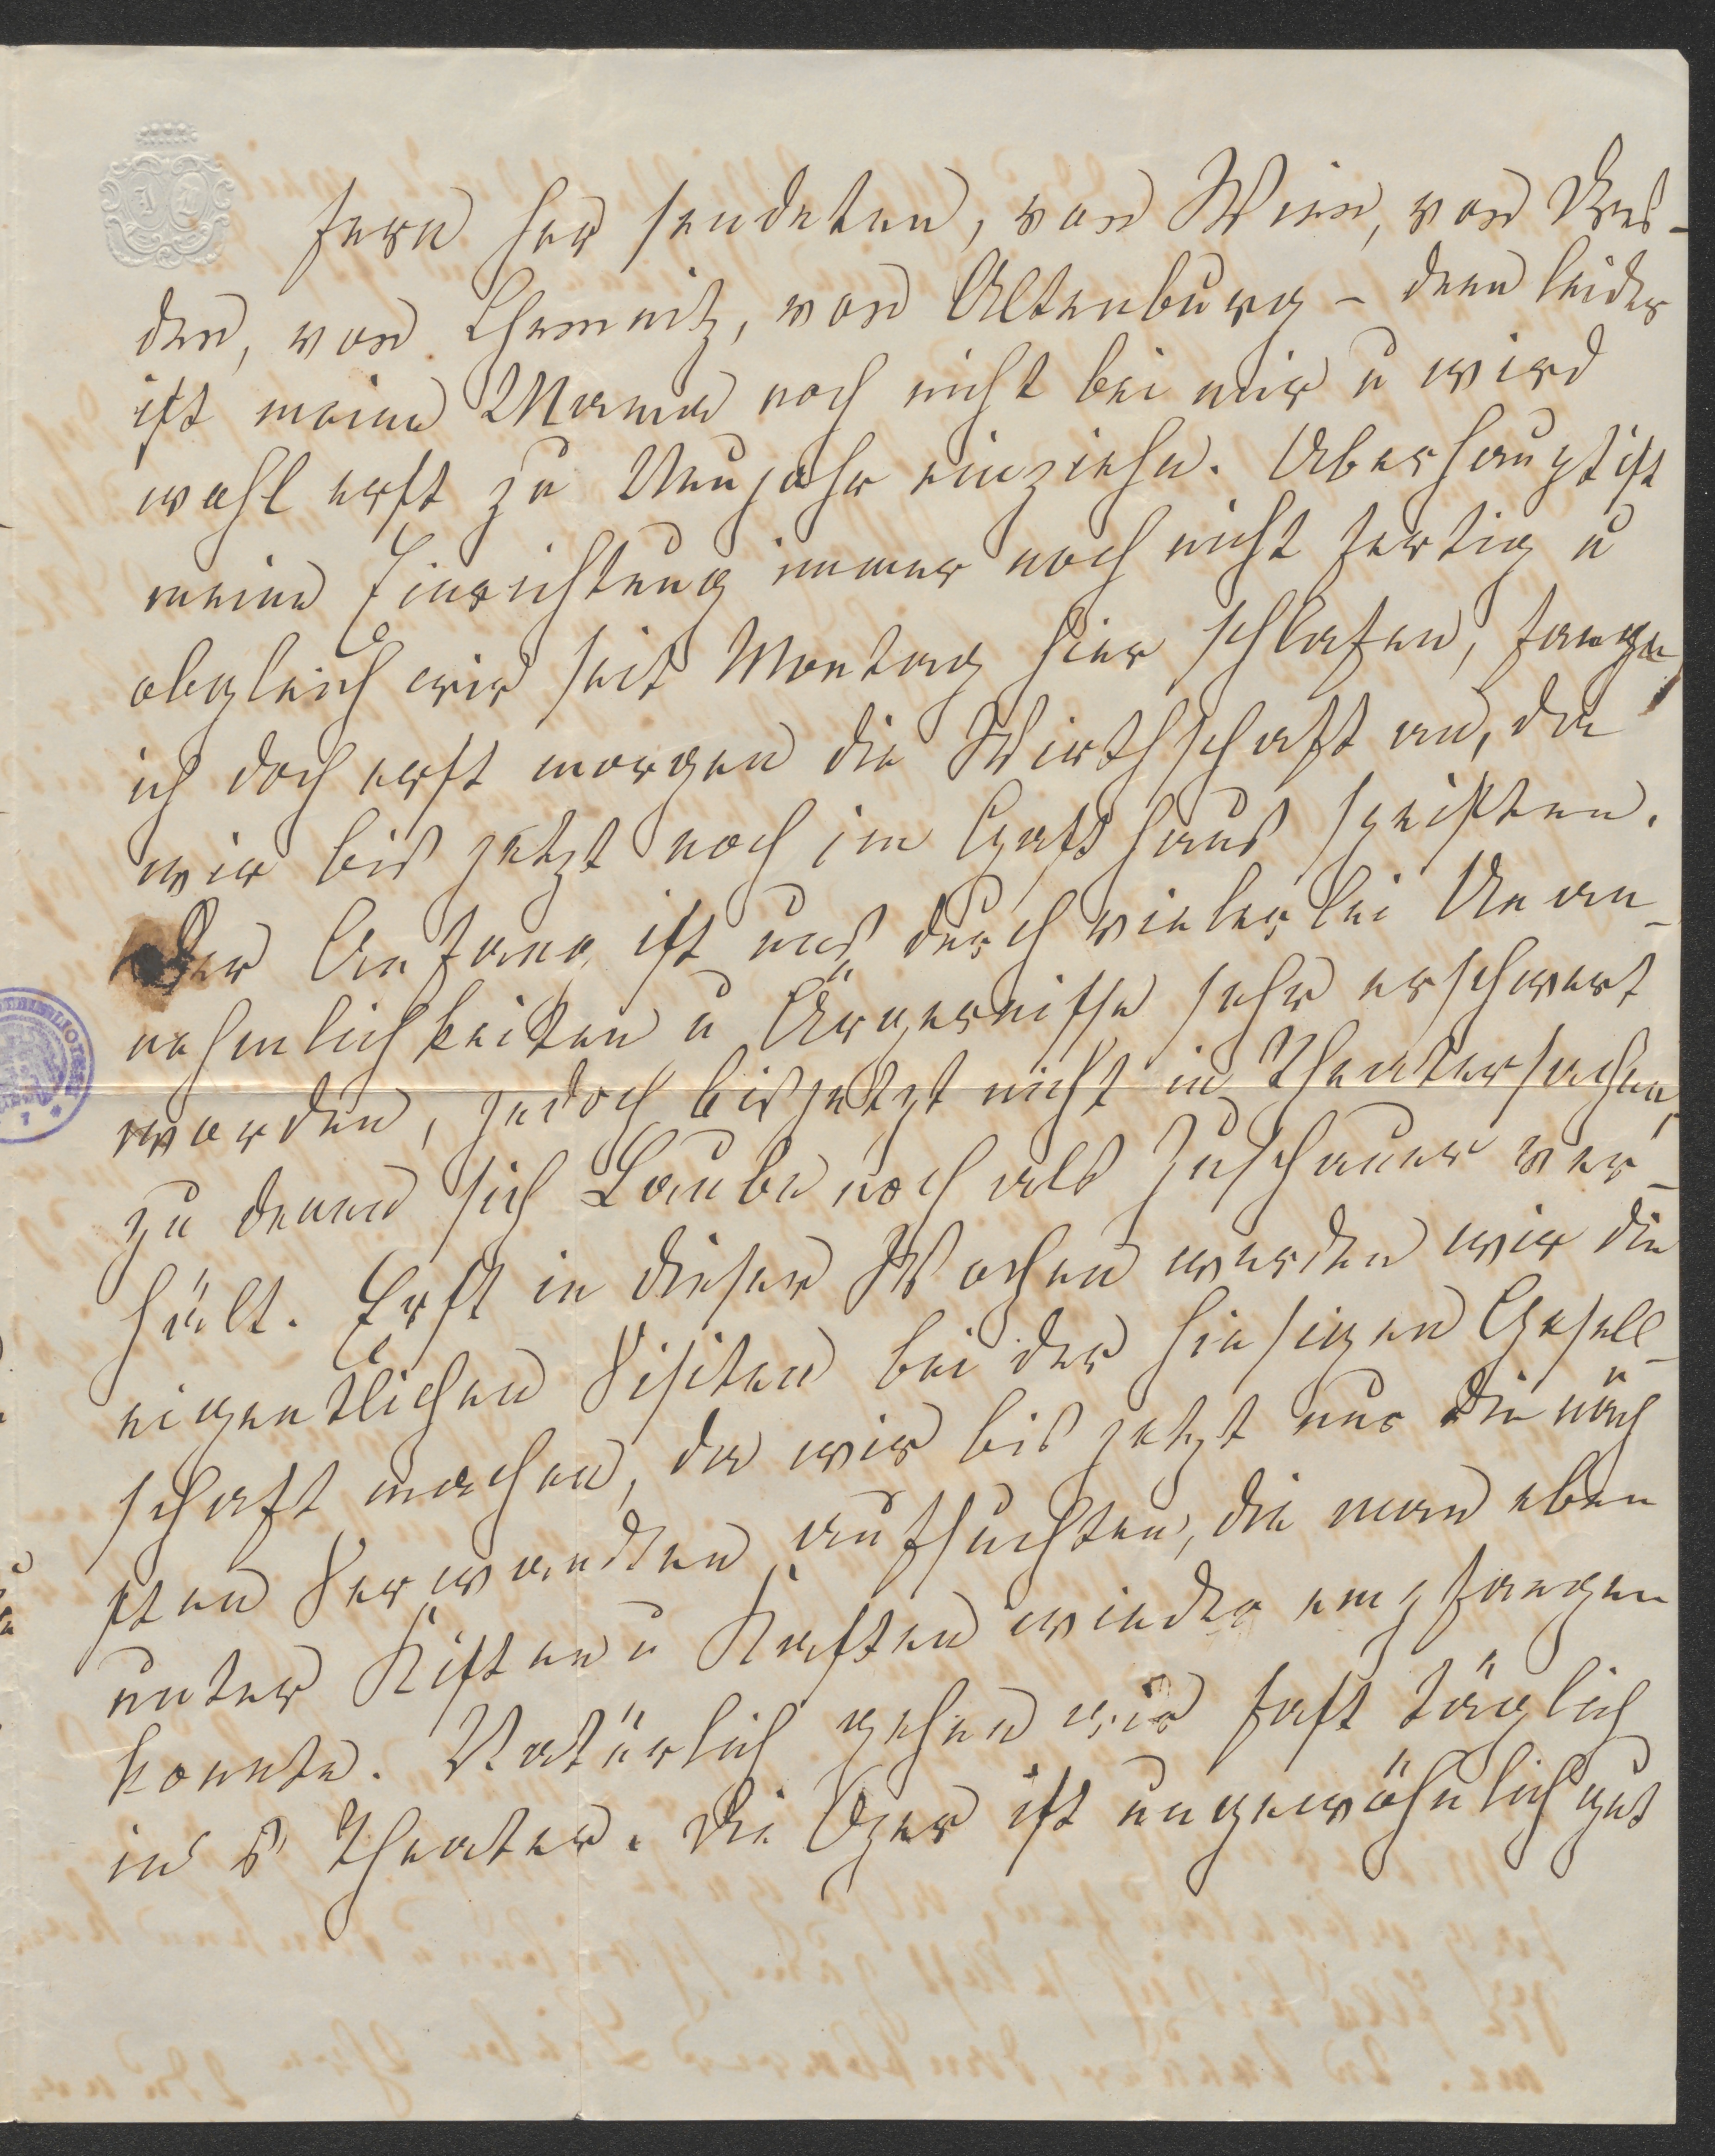 fern her sendeten, von Wien, von Dres-
den, von Chemnitz, von Altenburg – denn leider
ist meine Mama noch nicht bei mir u wird
wohl erst zu Neujahr einziehn. Überhaupt ist
meine Einrichtung immer noch nicht fertig u
obgleich wir seit Montag hier schlafen, fange
ich doch erst morgen die Wirthschaft an, da
wir bis jetzt noch im Gasthaus speisten.
Der Anfang ist uns durch vielerlei Unan-
nehmlichkeiten u Ärgernisse sehr erschwert
worden, jedoch bis jetzt nicht in Theatersachen,
zu denen sich Laube noch als Zuschauer ver-
hält. Erst in dieser Wochen werden wir die
eigentlichen Visiten bei der hiesigen Gesell-
schaft machen, da wir bis jetzt nur die näch
sten Verwandten aufsuchten, die man eben
unter Kisten u Kasten wieder empfangen
konnte. Natürlich gehen wir fast täglich
in's Theater. Die Oper ist ungewöhnlich gut